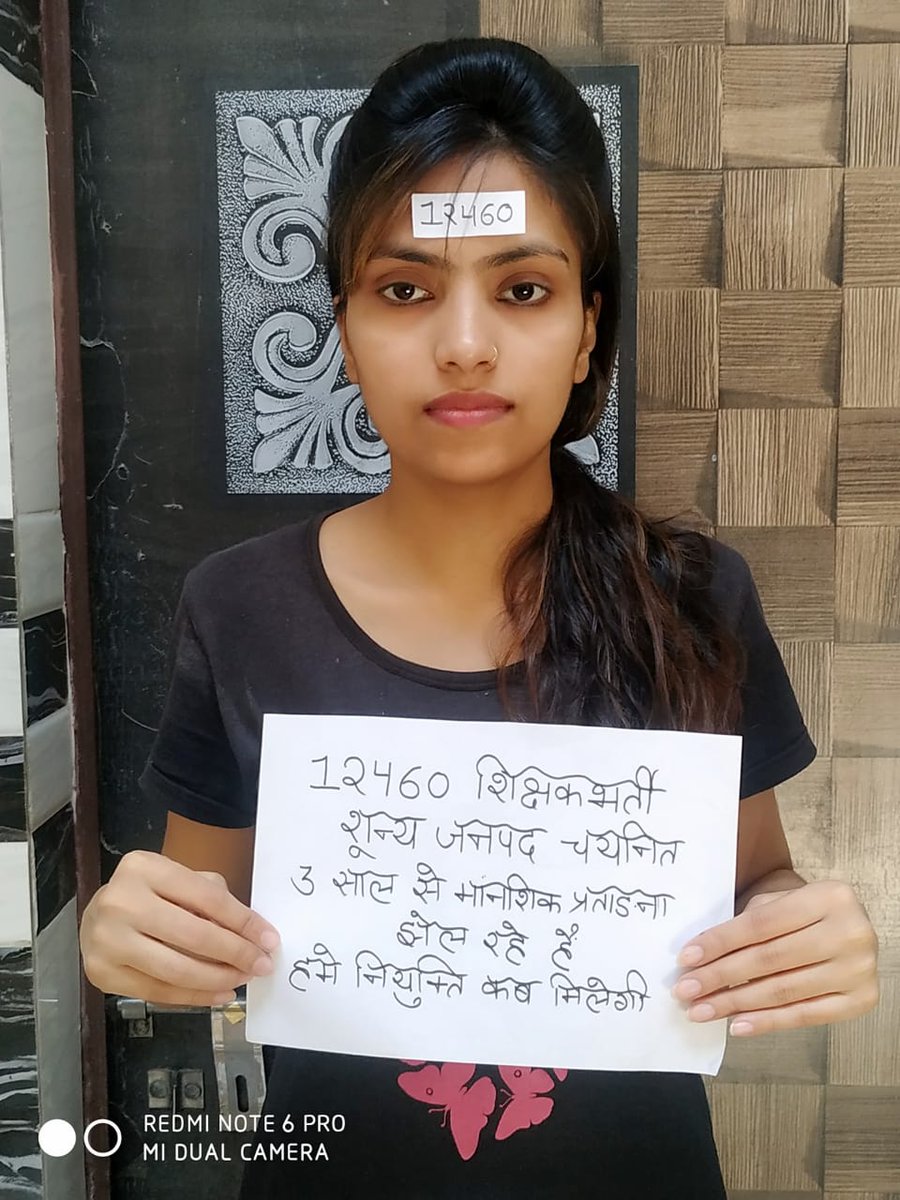 12460
12460 शिक्षकभर्ती
शून्य जनपद चयनित
3 साल से मानशिक प्रताडना
झेल रहे हैं
हमे नियुक्ति कब मिलेगी
REDMI NOTE 6 PRO
MI DUAL CAMERA